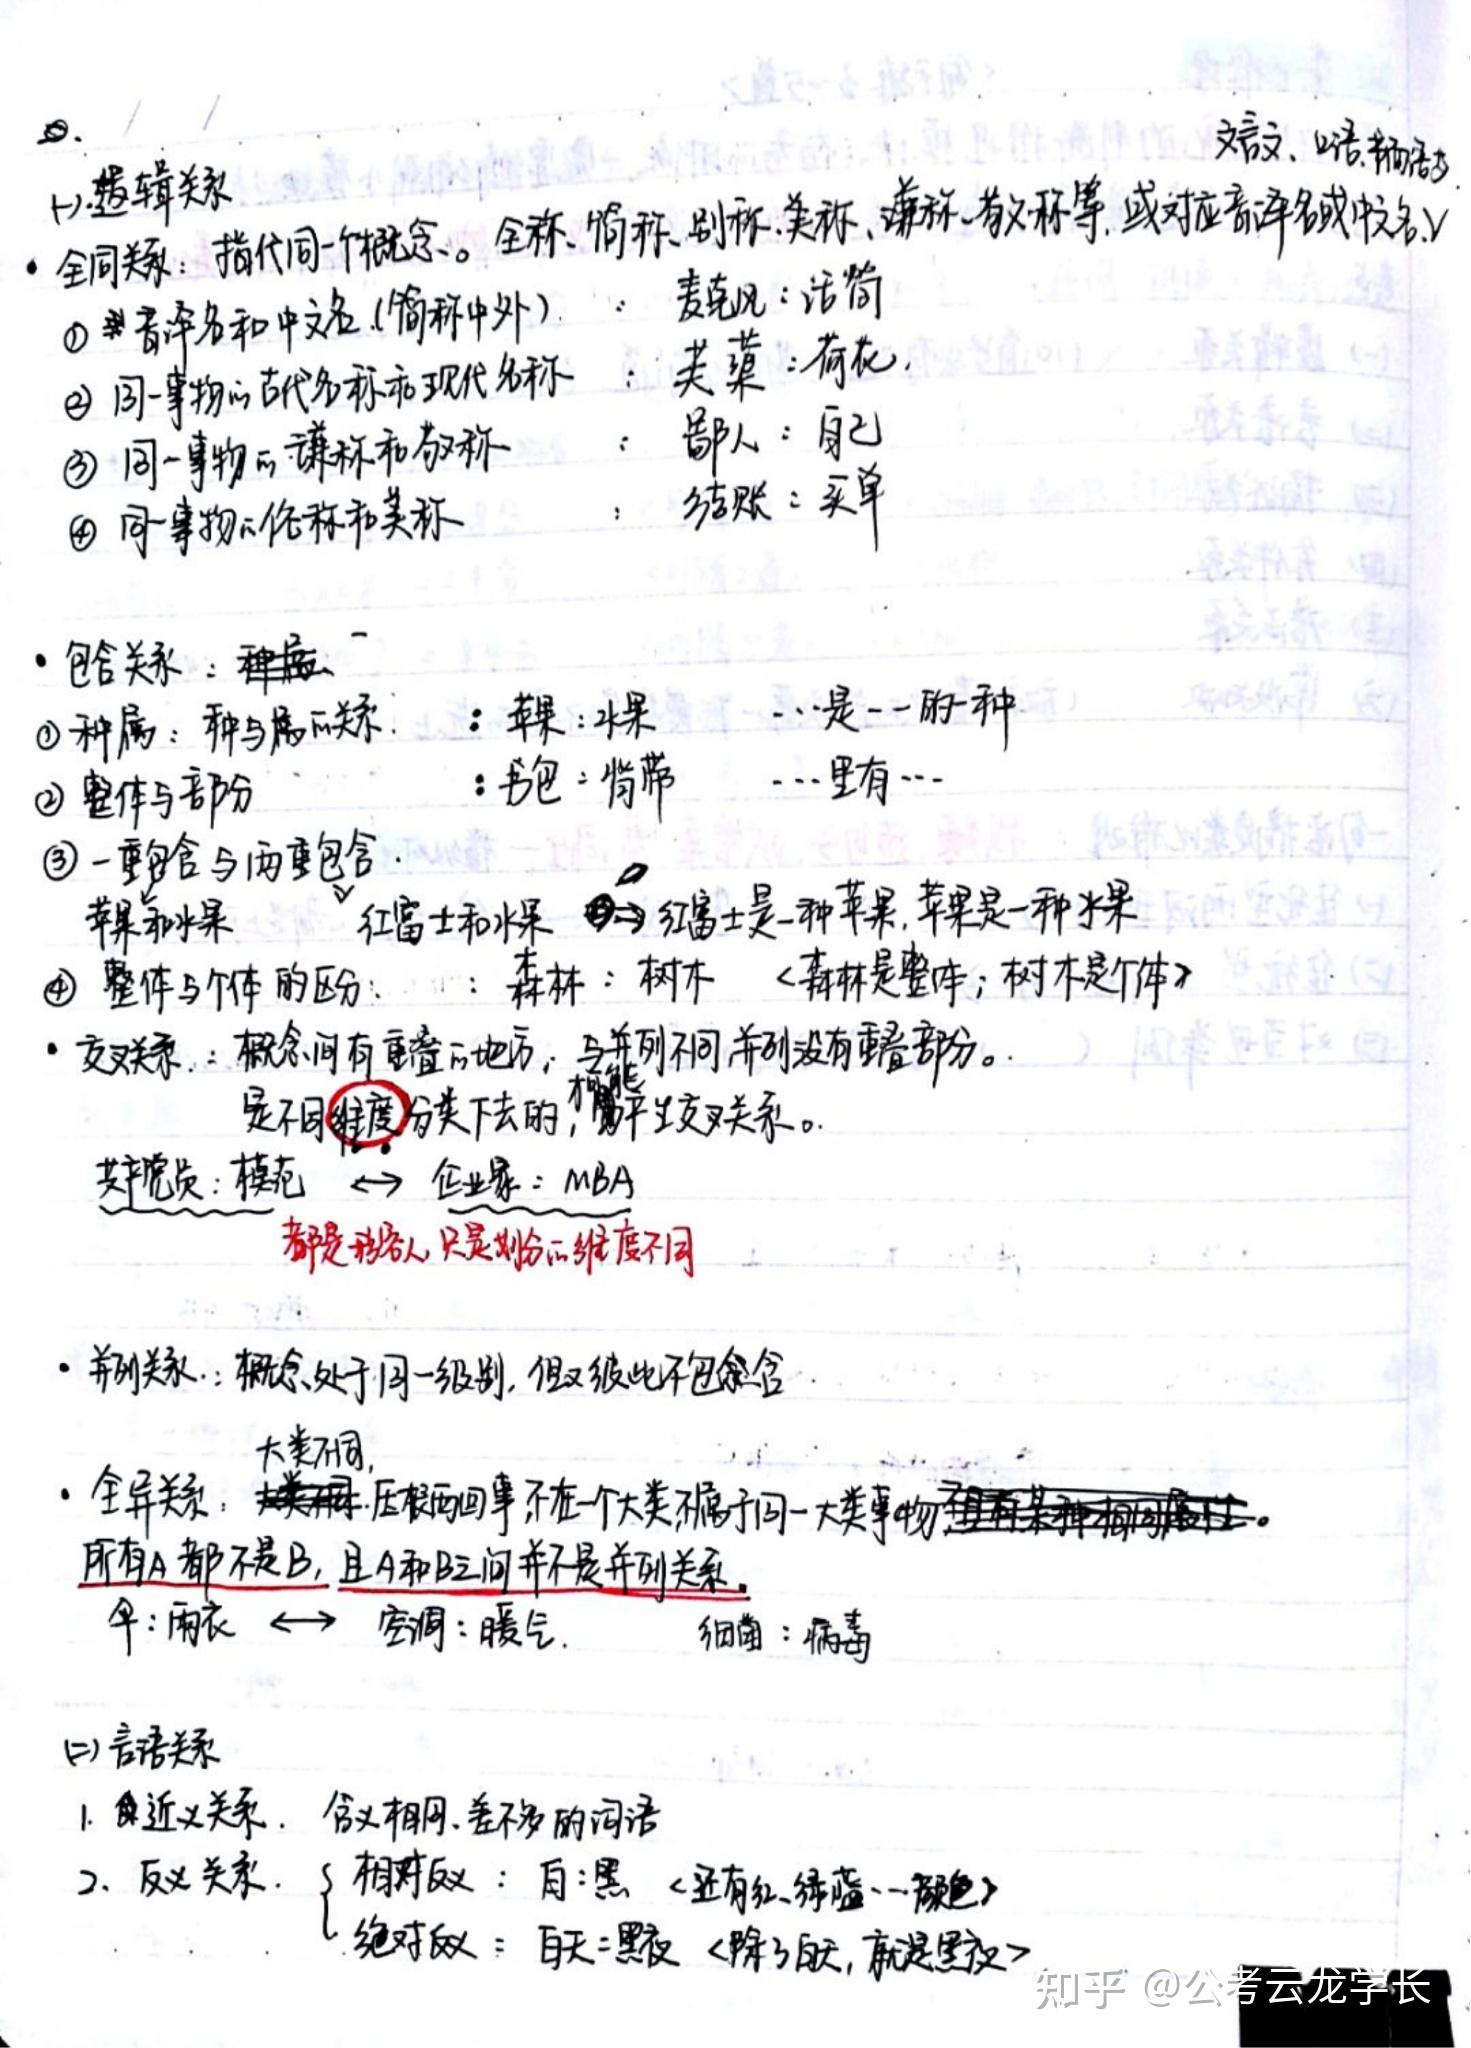 文言文、口语、书面语
(一).逻辑关系
• 全同关系：指代同一个概念。全称、简称、别称、美称、谦称、敬称等,或对应音译名或中文名、
① 音译名和中文名(简称中外) : 麦克风：话筒
② 同一事物的古代名称和现代名称 : 芙蕖：荷花.
③ 同一事物的谦称和敬称 : 鄙人：自己
④ 同一事物的俗称和美称 : 结账：买单
• 包含关系：种属
① 种属：种与属的关系. : 苹果：水果 …是…的一种
② 整体与部分 : 书包：背带 …里有…
③ 一重包含与两重包含.
苹果和水果 红富士和水果 => 红富士是一种苹果,苹果是一种水果
④ 整体与个体的区分: : 森林：树木 <森林是整体；树木是个体>
• 交叉关系：概念间有重叠的地方，与并列不同,并列没有重叠部分。
是不同维度分类下去的，才能产生交叉关系。
共产党员：模范 ↔ 企业家：MBA
都是形容人 只是划分的维度不同
• 并列关系：概念处于同一级别，但又彼此不包含
大类不同,
• 全异关系： 压根两回事,不在一个大类,不属于同一大类事物,但有某种相同属性。
所有A都不是B，且A和B之间并不是并列关系。
伞：雨衣 ↔ 空调：暖气. 细菌：病毒
(二) 言语关系
1. 近义关系. 含义相同、差不多的词语
2. 反义关系. { 相对反义：白：黑 <还有红、绿蓝…颜色>
绝对反义：白天：黑夜 <除了白天，就是黑夜>
知乎 @公考云龙学长